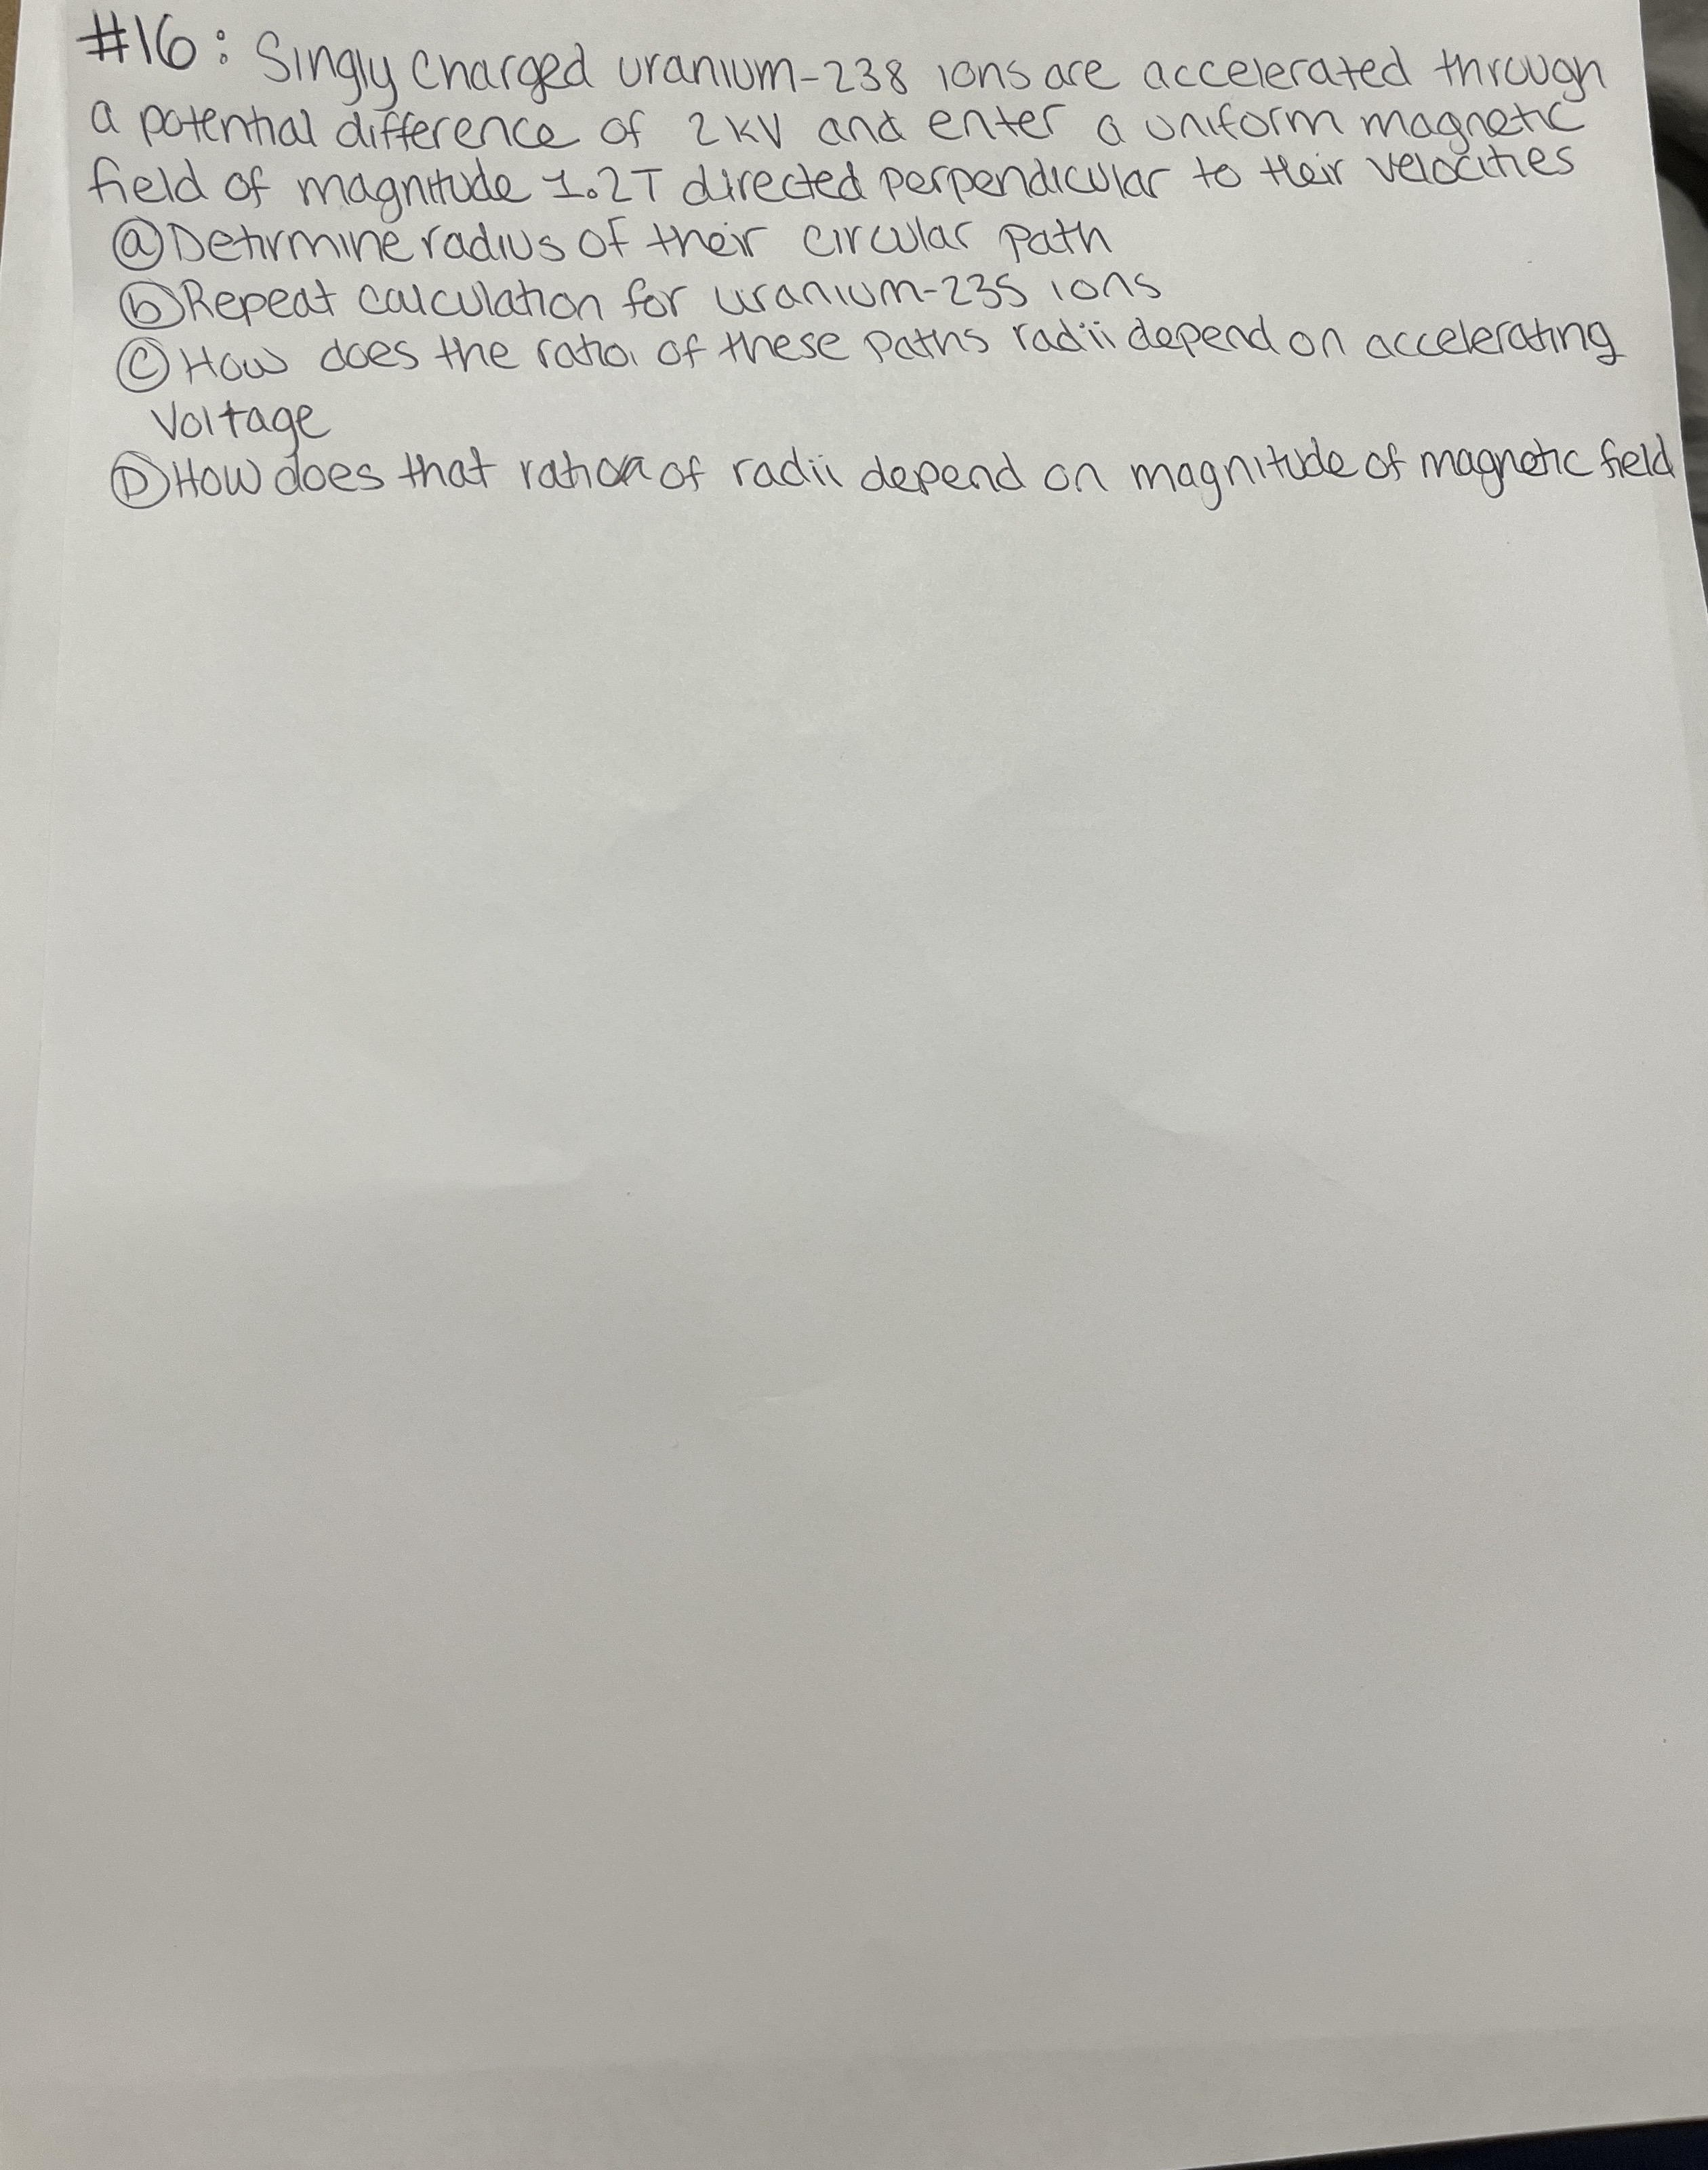 #16: Singly charged uranium-238 ions are accelerated through
a potential difference of 2kV and enter a uniform magnetic
field of magnitude 1.2T directed perpendicular to their velocities
(a) Detirmine radius of their circular path
(b) Repeat calculation for uranium-235 ions
(c) How does the ratio of these paths radii depend on accelerating
Voltage
(D) How does that ratio of radii depend on magnitude of magnetic field